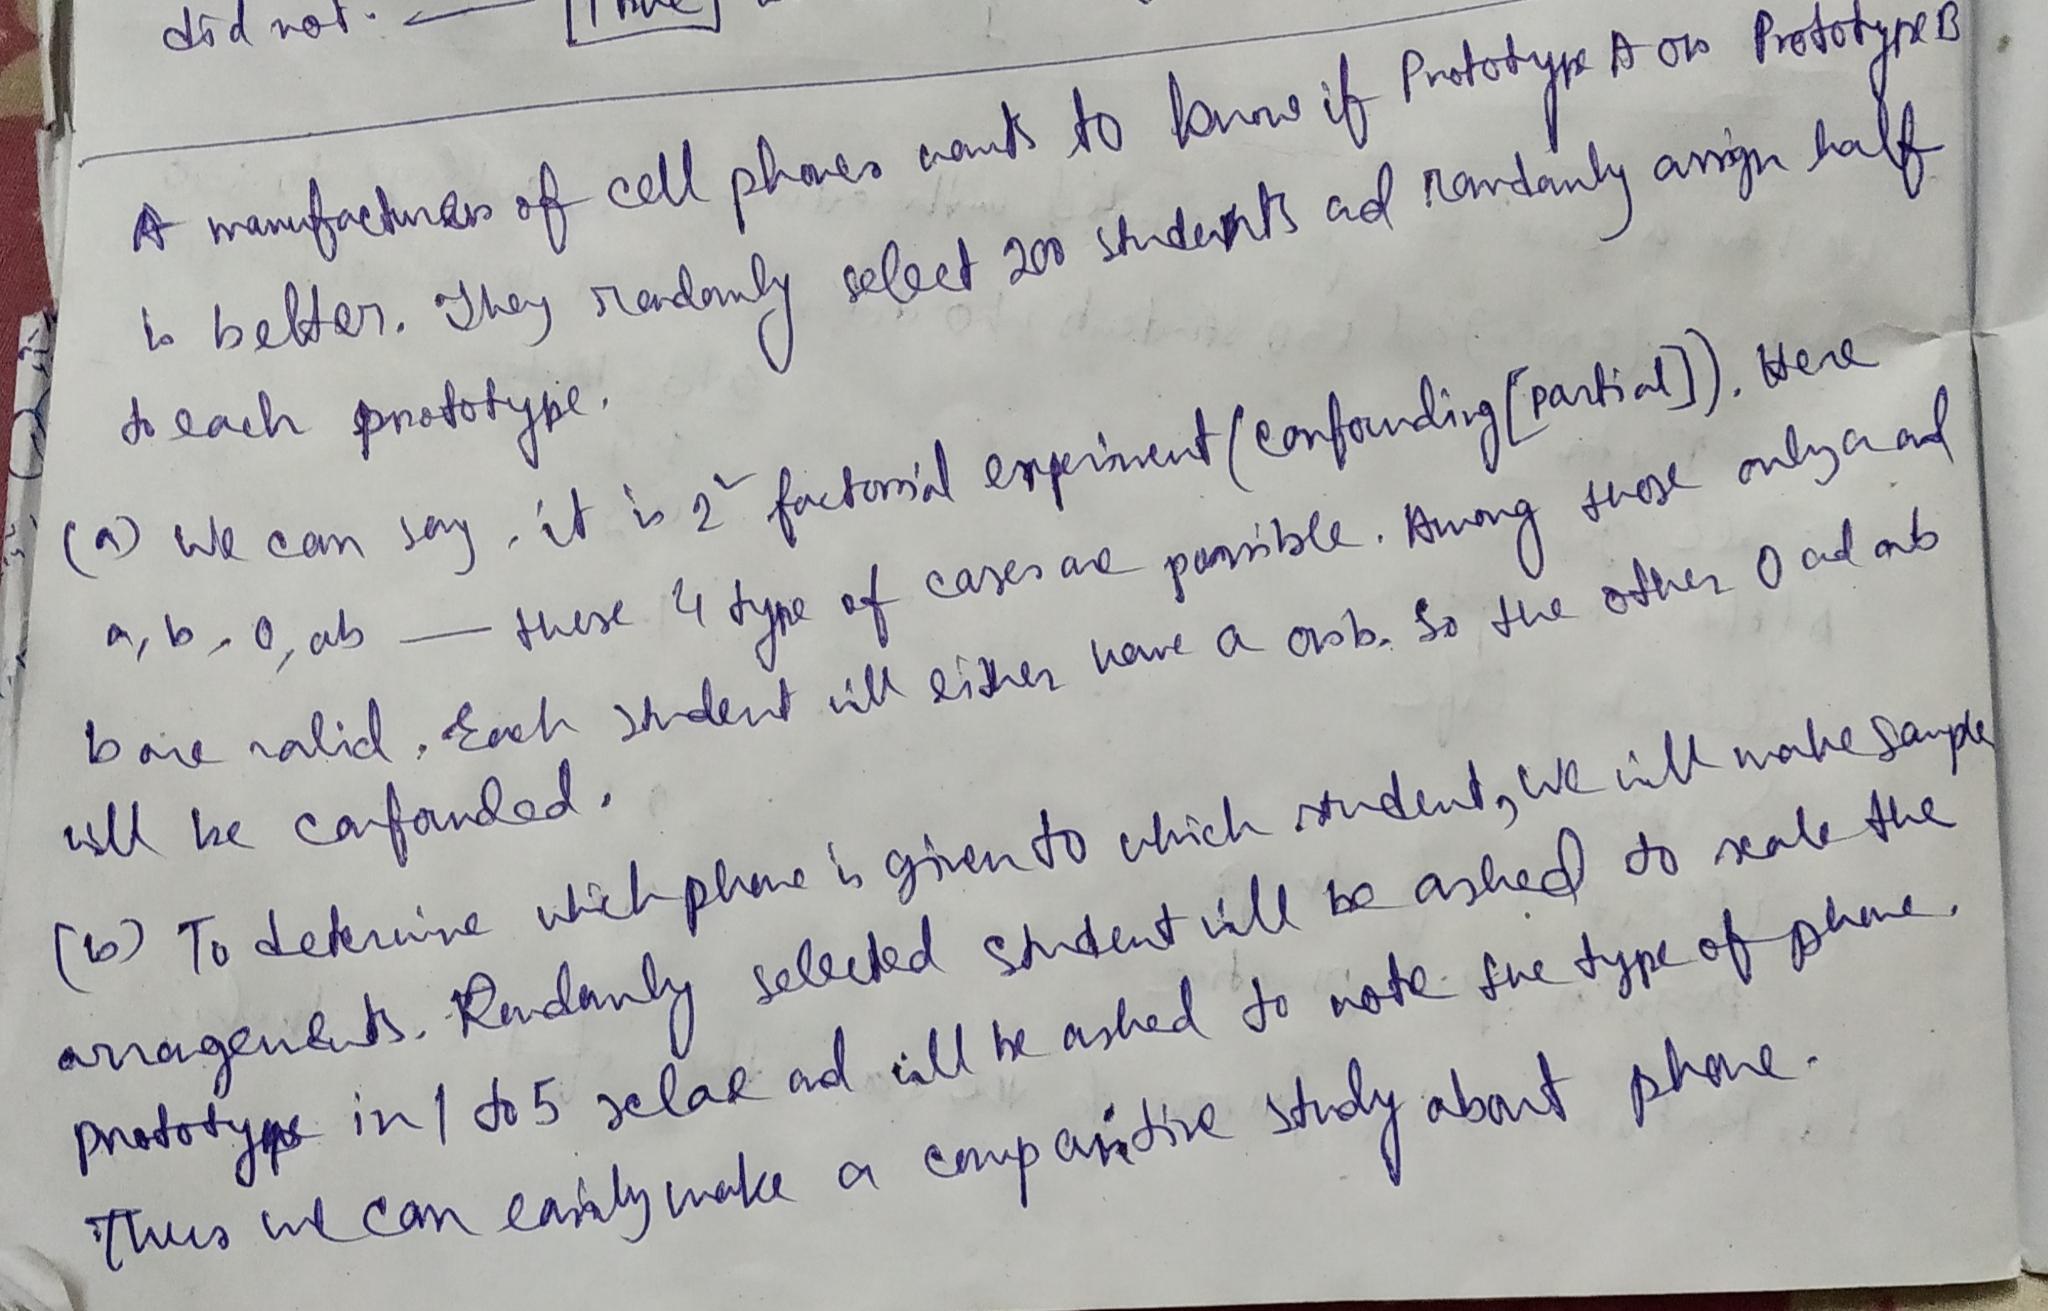 did not. — [True]
A manufacturer of cell phones wants to know if Prototype A or Prototype B
is better. They randomly select 200 students ad randomly assign half
to each prototype.
(a) We can say, it is 2² factorial experiment (confounding [partial]). Here
a, b, 0, ab — these 4 type of cases are possible. Among those only a and
b are valid. Each student will either have a or b. So the other 0 ad ab
will be confounded.
(b) To determine which phone is given to which student, we will make sample
arragements. Randomly selected student will be asked to scale the
prototype in 1 to 5 sclae ad will be asked to note the type of phone.
Thus we can easily make a comparitive study about phone.